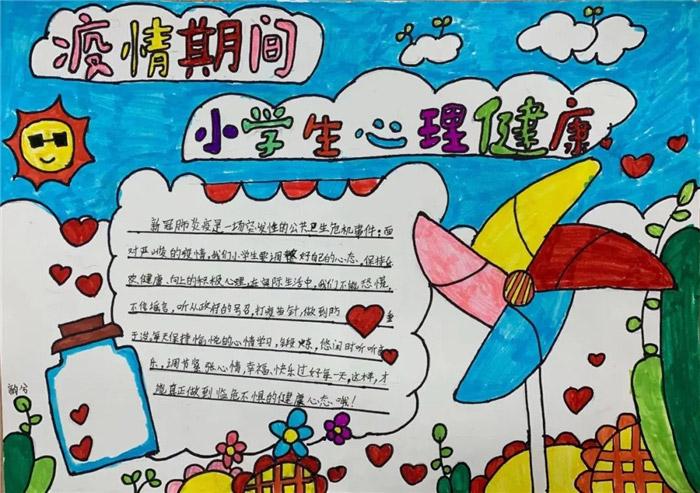 疫情期间
小学生心理健康
新冠肺炎疫是一场突发性的公共卫生危机事件；面
对严峻的疫情，我们小学生要调整好自己的心态，保持
欢健康、向上的积极心理，在实际生活中，我们不能恐慌、
不传谣言，听从政府的号召，打疫苗针，做到防
于治，每天保持愉悦的心情学习，锻炼，悠闲时听听音
乐，调节紧张心情，幸福、快乐过好每一天，这样，才
能真正做到临危不惧的健康心态哦！